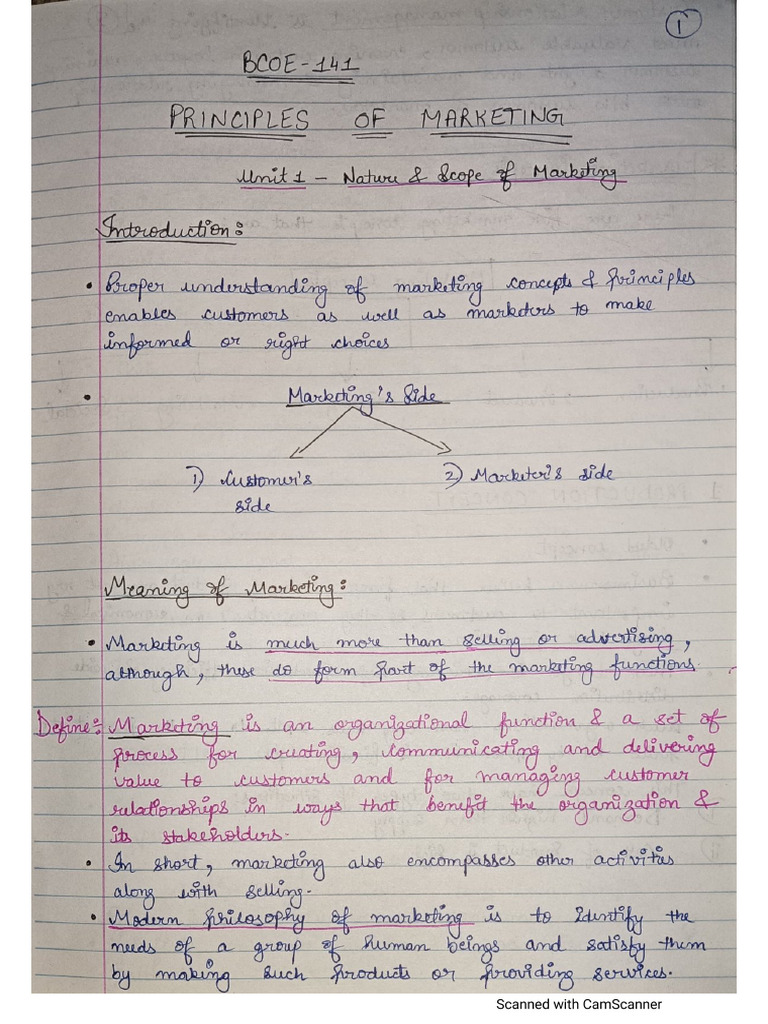 1
BCOE-141
PRINCIPLES OF MARKETING
Unit 1 - Nature & Scope of Marketing
Introduction:
• Proper understanding of marketing concepts & principles
enables customers as well as marketers to make
informed or right choices
• Marketing's Side
1) Customer's 2) Marketer's side
side
Meaning of Marketing:
• Marketing is much more than selling or advertising,
although, these do form part of the marketing functions.
Define: Marketing is an organizational function & a set of
process for creating, communicating and delivering
value to customers and for managing customer
relationships in ways that benefit the organization &
its stakeholders.
• In short, marketing also encompasses other activities
along with selling.
• Modern philosophy of marketing is to Identify the
needs of a group of human beings and satisfy them
by making such products or providing services.
Scanned with CamScanner